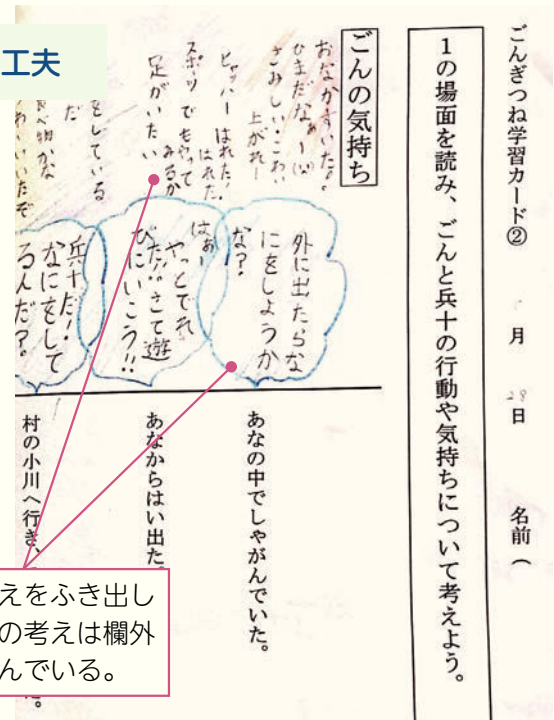 工夫
ごんぎつね学習カード② 月 28日 名前（
1の場面を読み、ごんと兵十の行動や気持ちについて考えよう。
ごんの気持ち
おなかすいた。
ひまだなぁー
さみしい・こわい
上がれー
ヒャッハー はれた！
はれた
スポーツでもやって
みるか
足がいたい
をしている
だ
べ物かな
いいたぞ
外に出たらな
にをしようか
な？
はぁー
やっとでれ
た!!さて遊
びにいこう!!
兵十だ！
なにをして
るんだ？
あなの中でしゃがんでいた。
あなからはい出た。
村の小川へ行き、
た。
えをふき出し
の考えは欄外
んでいる。